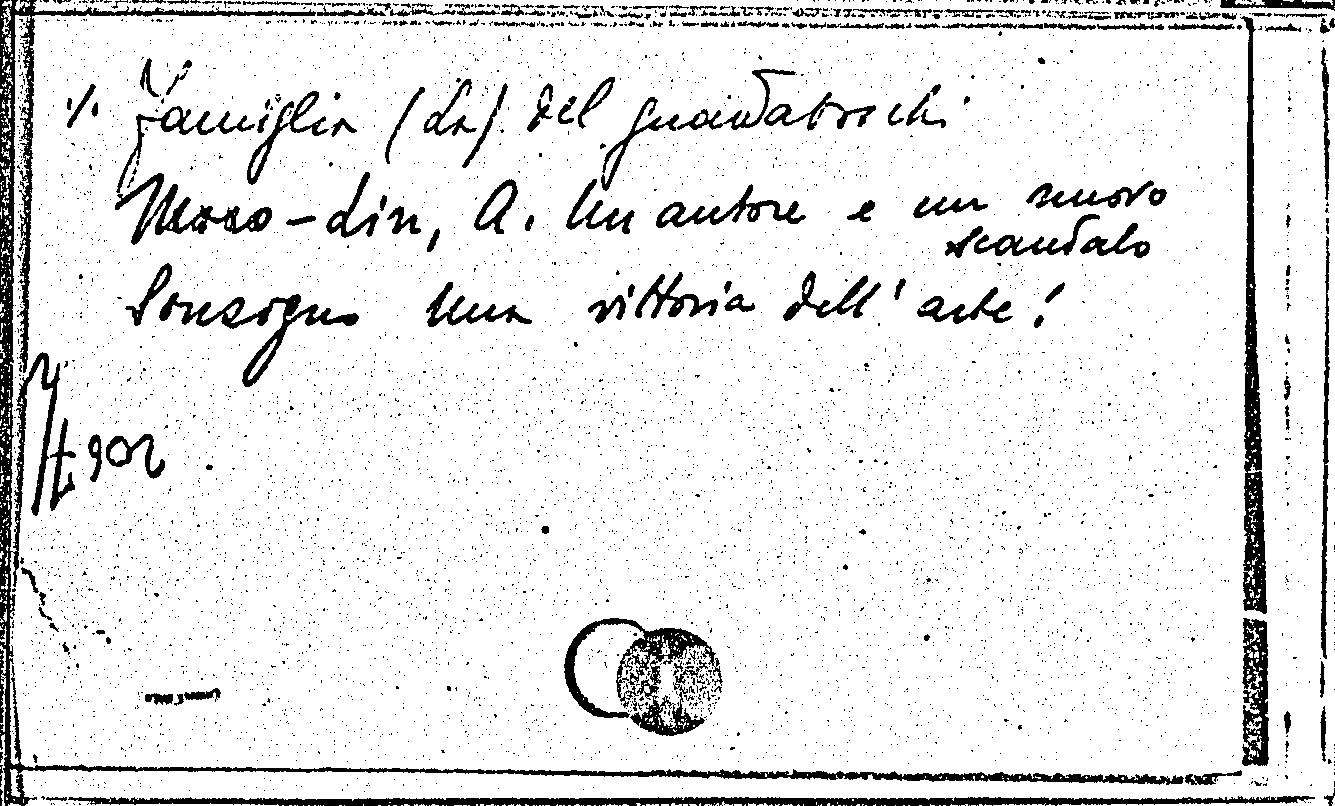 ·/. Famiglia (La) del guardaboschi
Moro-Lin, A. Un autore e un nuovo
scandalo
Sonzogno Una vittoria dell' arte!
902